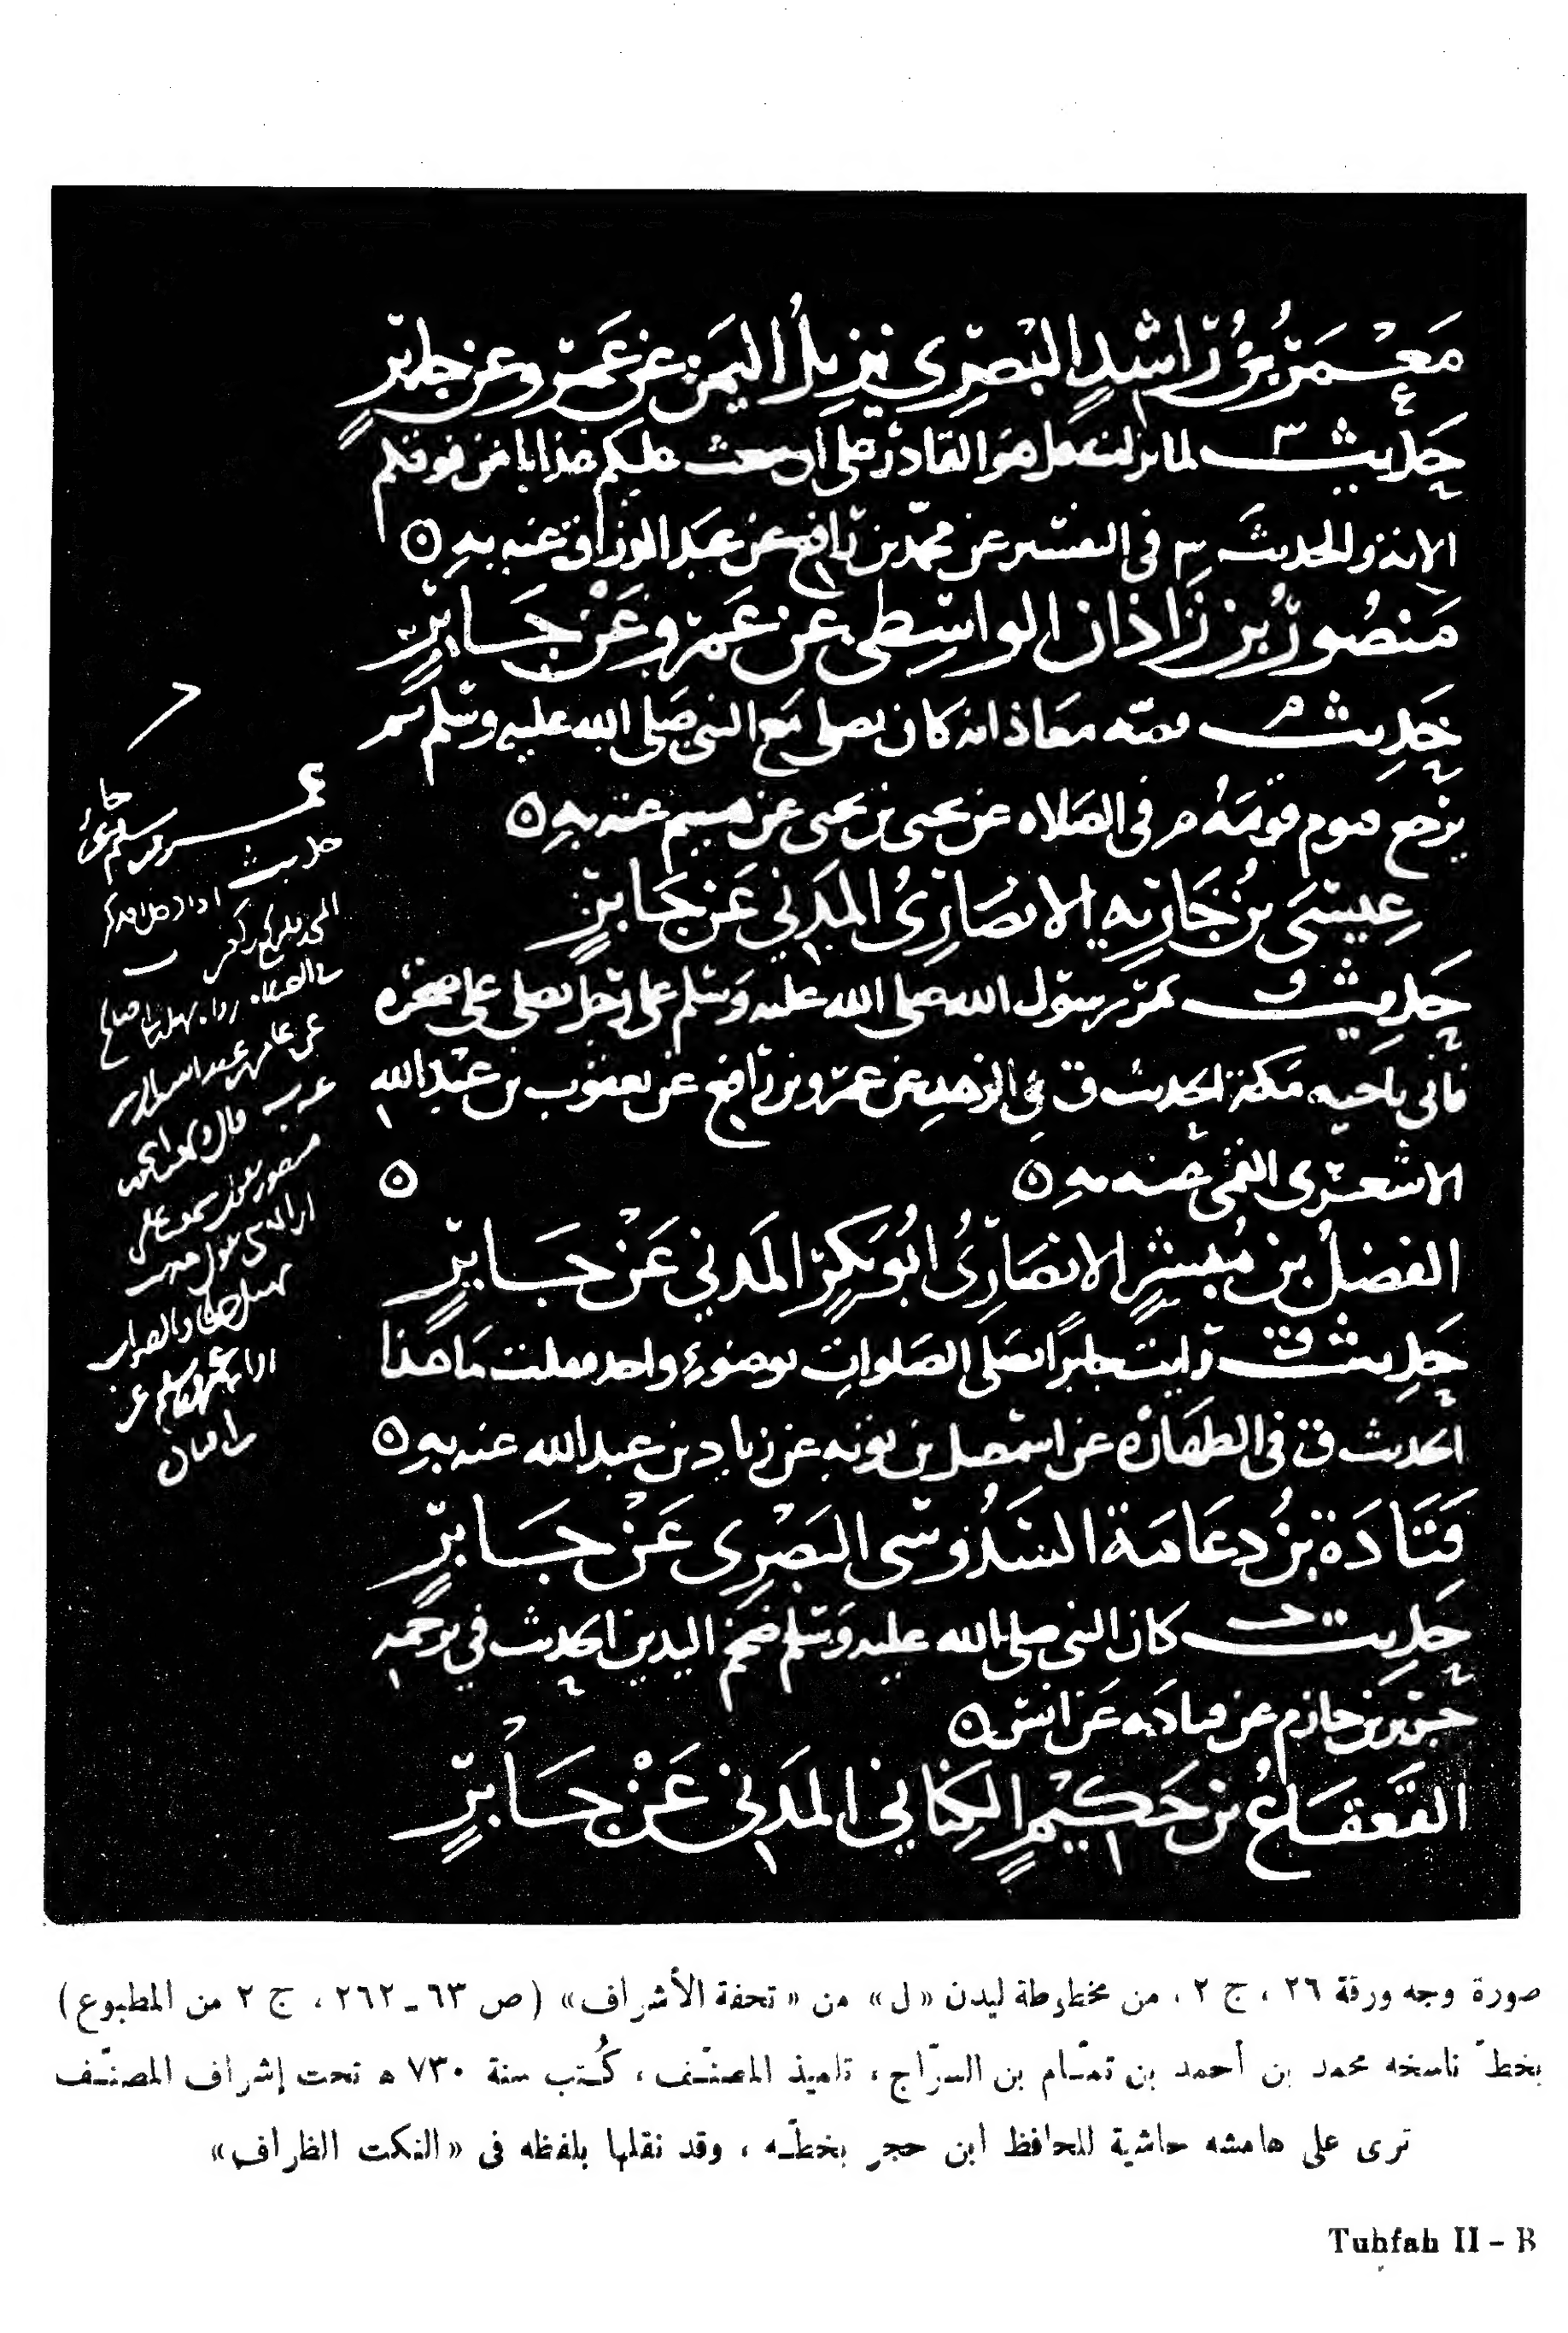 معمر بن راشد البصري نزيل اليمن عن عمرو عن جابر
حديث س لما نزلت قل هو القادر على أن يبعث عليكم عذابا من فوقكم
الآية والحديث س في التفسير عن محمد بن رافع عن عبد الرزاق عنه به ٥
منصور بن زاذان الواسطي عن عمرو عن جابر
حديث م قصة معاذ انه كان يصلي مع النبي صلى الله عليه وسلم ثم
يرجع فيؤم قومه م في الصلاة عن يحيى بن يحيى عن هشيم عنه به ٥
عيسى بن جارية الانصاري المدني عن جابر
حديث ق مر رسول الله صلى الله عليه وسلم على رجل يصلي على صخرة
فأتى ناحية مكة الحديث ق في الزهد عن عمرو بن رافع عن يعقوب بن عبد الله
الاشعري القمي عنه به ٥ ٥
الفضل بن مبشر الانصاري ابو بكر المدني عن جابر
حديث ق رأيت جابرا يصلي الصلوات بوضوء واحد فقلت ما هذا
الحديث ق في الطهارة عن اسمعيل بن توبة عن زياد بن عبد الله عنه به ٥
قتادة بن دعامة السدوسي البصري عن جابر
حديث خت كان النبي صلى الله عليه وسلم ضخم اليدين الحديث في ترجمة
جرير بن حازم عن قتادة عن انس ٥
القعقاع بن حكيم الكناني المدني عن جابر
ع
حديث
عن عامر بن عبد الله
صورة وجه ورقة ٢٦ ، ج ٢ ، من مخطوطة ليدن «ل» من «تحفة الأشراف» (ص ٦٣ــ٢٦٢ ، ج ٢ من المطبوع)
بخطّ ناسخه محمد بن أحمد بن تمّام بن السرّاج ، تلميذ المصنّف ، كُتب سنة ٧٣٠ ه تحت إشراف المصنّف
ترى على هامشه حاشية للحافظ ابن حجر بخطّه ، وقد نقلها بلفظه فى «النكت الظراف»
Tuḥfah II – B